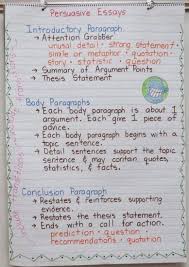 Persuasive Essays
Introductory Paragraph
→ Attention Grabber
unusual detail · strong statement
simile or metaphor · quotation
story · statistic · question
→ Summary of Argument Points
→ Thesis Statement
Body Paragraphs
→ Each body paragraph is about 1
argument. Each give 1 piece of
advice.
→ Each body paragraph begins with a
topic sentence.
→ Detail sentences support the topic
sentence & may contain quotes,
statistics, & facts.
Conclusion Paragraph
→ Restates & Reinforces supporting
evidence.
→ Restates the thesis statement.
→ Ends with a call for action.
prediction · question
recommendations · quotation